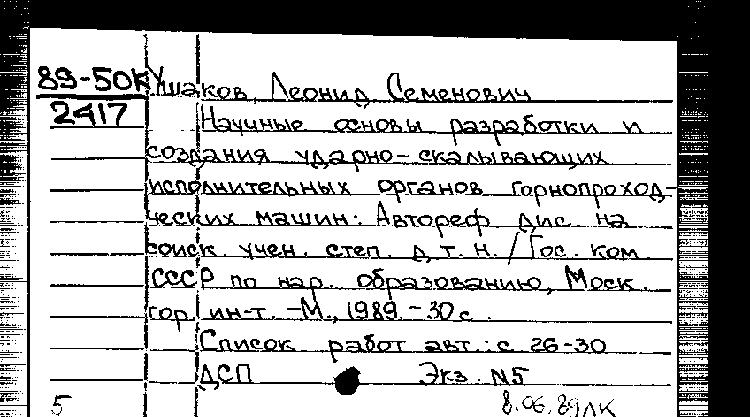 89-50К Ушаков, Леонид Семенович
2417 Научные основы разработки и
создания ударно-скалывающих
исполнительных органов горнопроход-
ческих машин: Автореф дис на
соиск. учен. степ. д.т.н. / Гос. ком.
СССР по нар. образованию, Моск.
гор. ин-т. -М., 1989.-30с.
Список работ авт.: с 26-30
ДСП Экз. N5
5 8.06.89ЛК